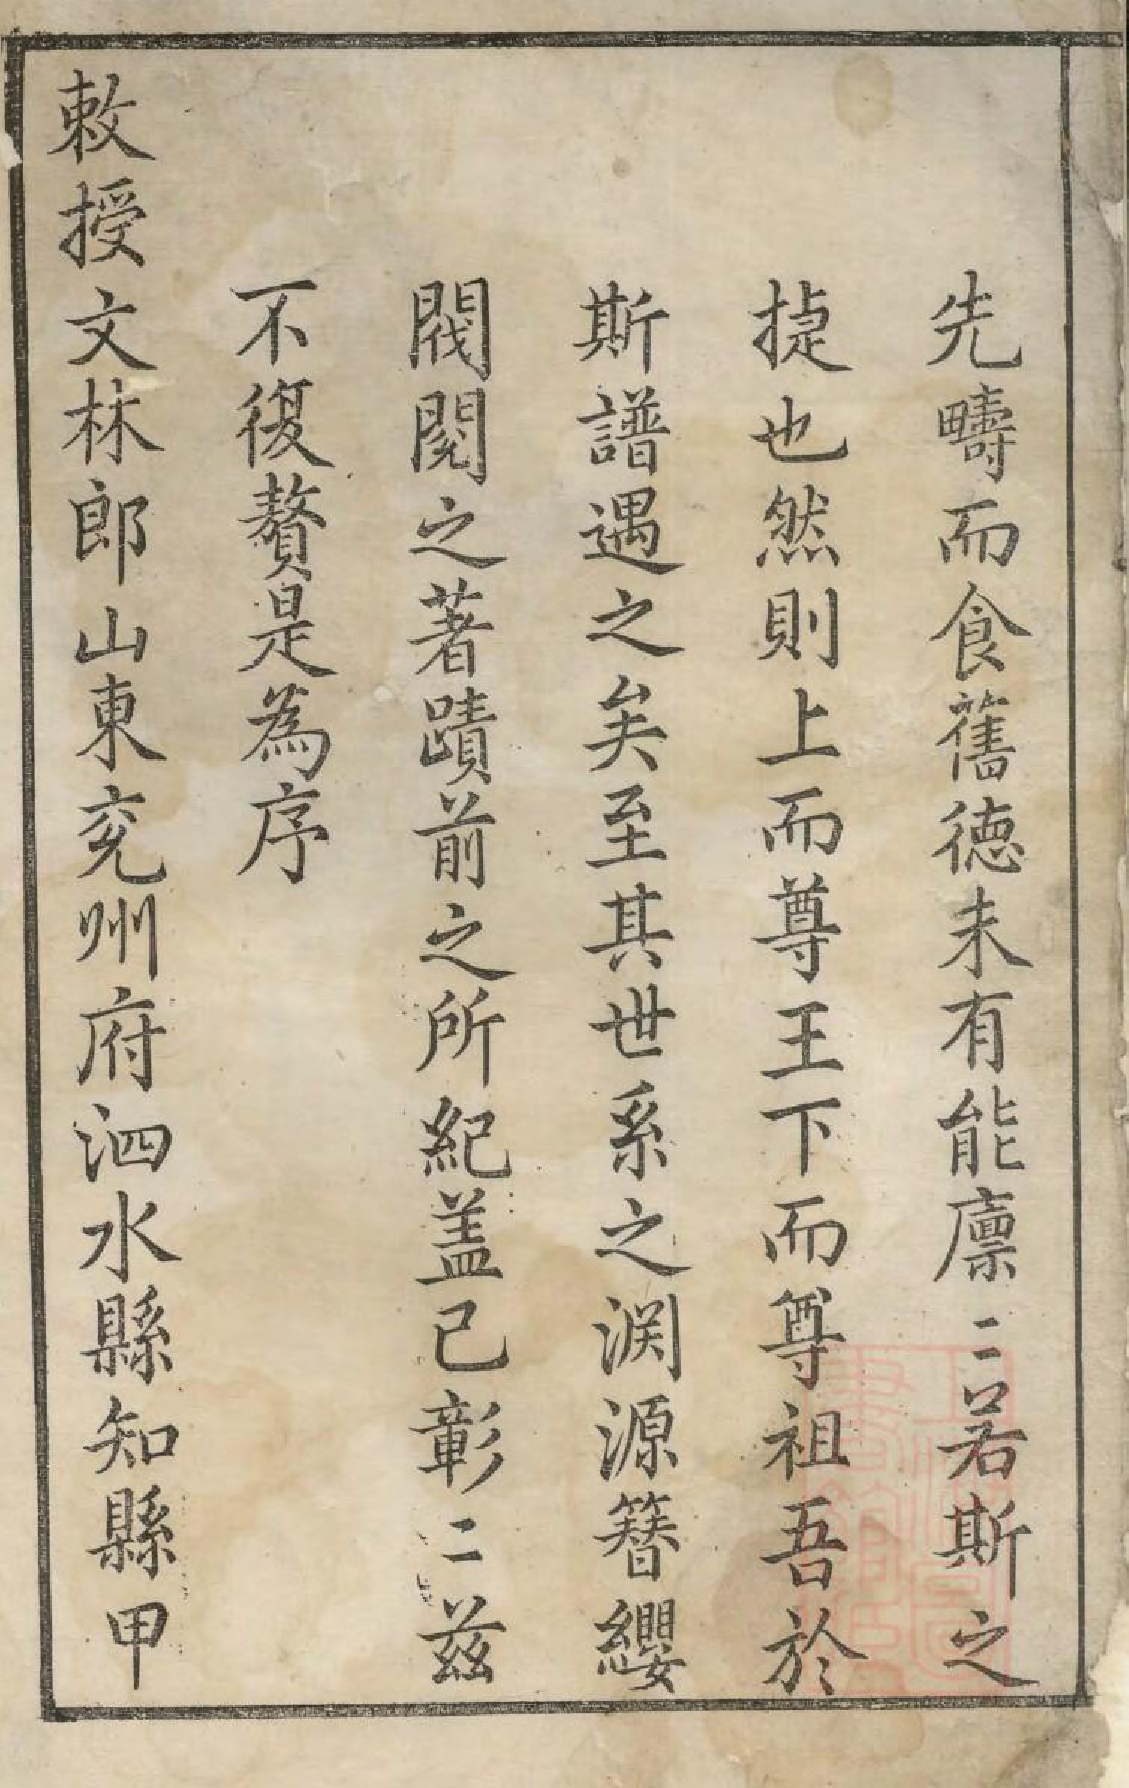 先疇而食舊德未有能廪〻若斯之
捷也然則上而尊王下而尊祖吾於
斯譜遇之矣至其世系之渊源簮纓
閥閱之著蹟前之所紀盖已彰〻兹
不復贅是為序
敕授文林郎山東兖州府泗水縣知縣甲